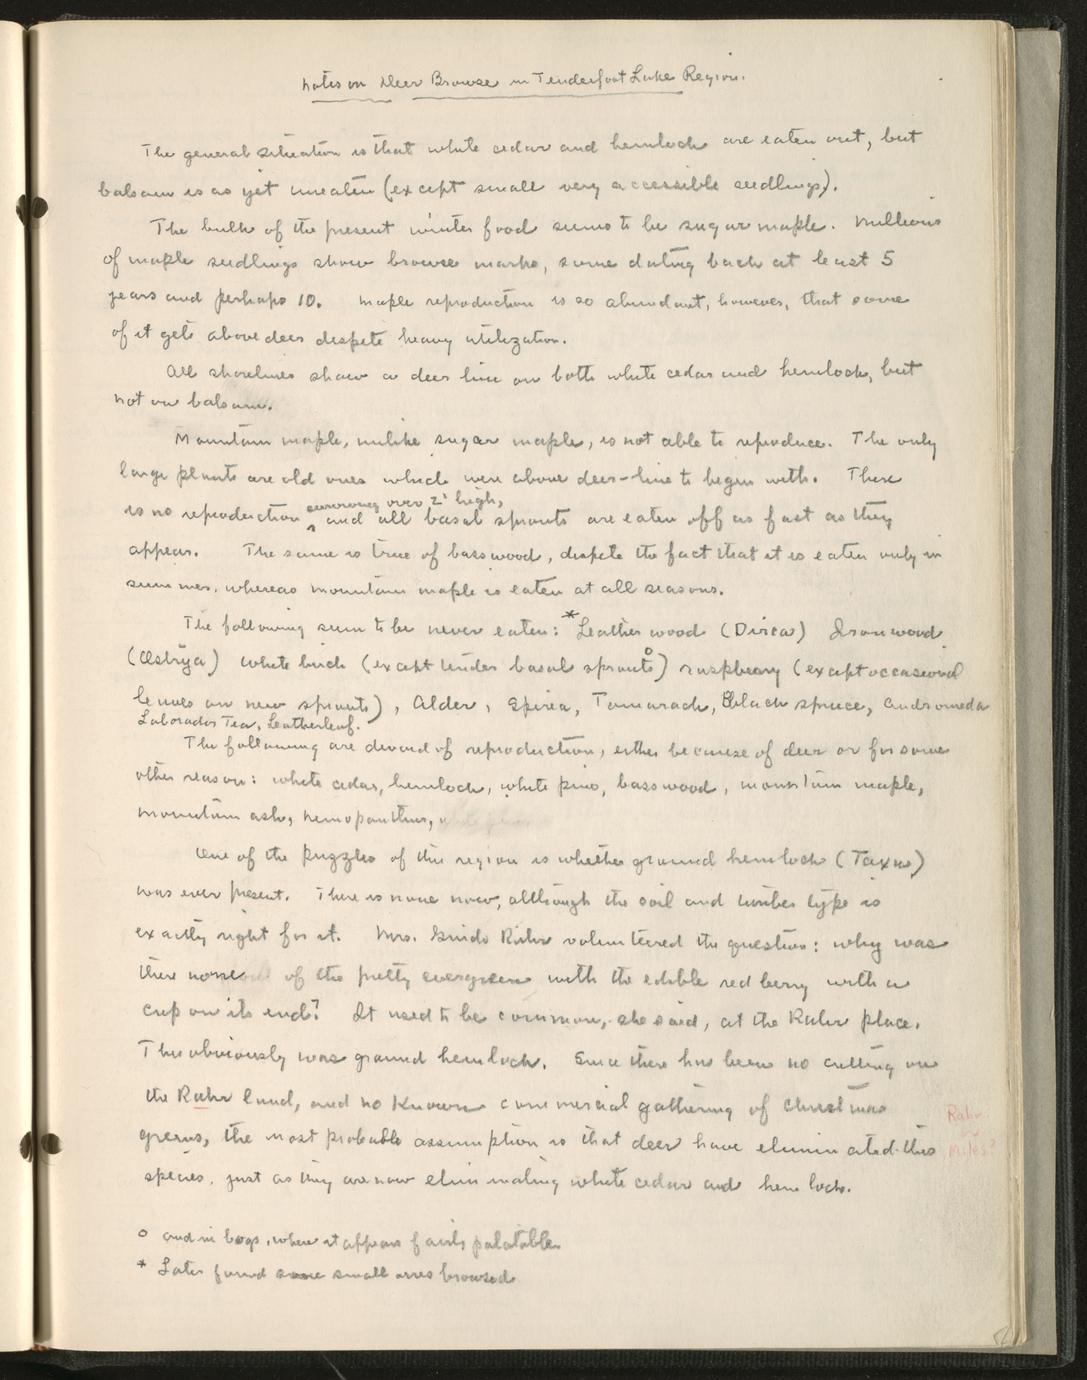 Notes on Deer Browse in Tenderfoot Lake Region.
The general situation is that white cedar and hemlock are eaten out, but
balsam is as yet uneaten (except small very accessible seedlings).
The bulk of the present winter food seems to be sugar maple. Millions
of maple seedlings show browse marks, some dating back at least 5
years and perhaps 10. Maple reproduction is so abundant, however, that some
of it gets above deer despite heavy utilization.
All shorelines show a deer line on both white cedar and hemlock, but
not on balsam.
Mountain maple, unlike sugar maple, is not able to reproduce. The only
large plants are old ones which were above deer-line to begin with. There
surviving over 2' high,
is no reproduction ^ and all basal sprouts are eaten off as fast as they
appear. The same is true of basswood, despite the fact that it is eaten only in
summer, whereas mountain maple is eaten at all seasons.
The following seem to be never eaten: *Leatherwood (Dirca) Ironwood
(Ostrya) White birch (except tender basal sprouts)° raspberry (except occasional
leaves on new sprouts), Alder, Spirea, Tamarack, Black spruce, andromeda
Labrador Tea, Leatherleaf.
The following are devoid of reproduction, either because of deer or for some
other reason: white cedar, hemlock, white pine, basswood, mountain maple,
mountain ash, nemopanthus,
One of the puzzles of this region is whether ground hemlock (Taxus)
was ever present. There is none now, although the soil and timber type is
exactly right for it. Mrs. Guido Rahr volunteered the question: why was
there none of the pretty evergreen with the edible red berry with a
cup on its end? It used to be common, she said, at the Rahr place.
This obviously was ground hemlock. Since there has been no cutting on
the Rahr land, and no known commercial gathering of Christmas
greens, the most probable assumption is that deer have eliminated this
species, just as they are now eliminating white cedar and hemlock.
Rahr
or
Miles?
° and in bogs, where it appears fairly palatable
* Later found some small ones browsed